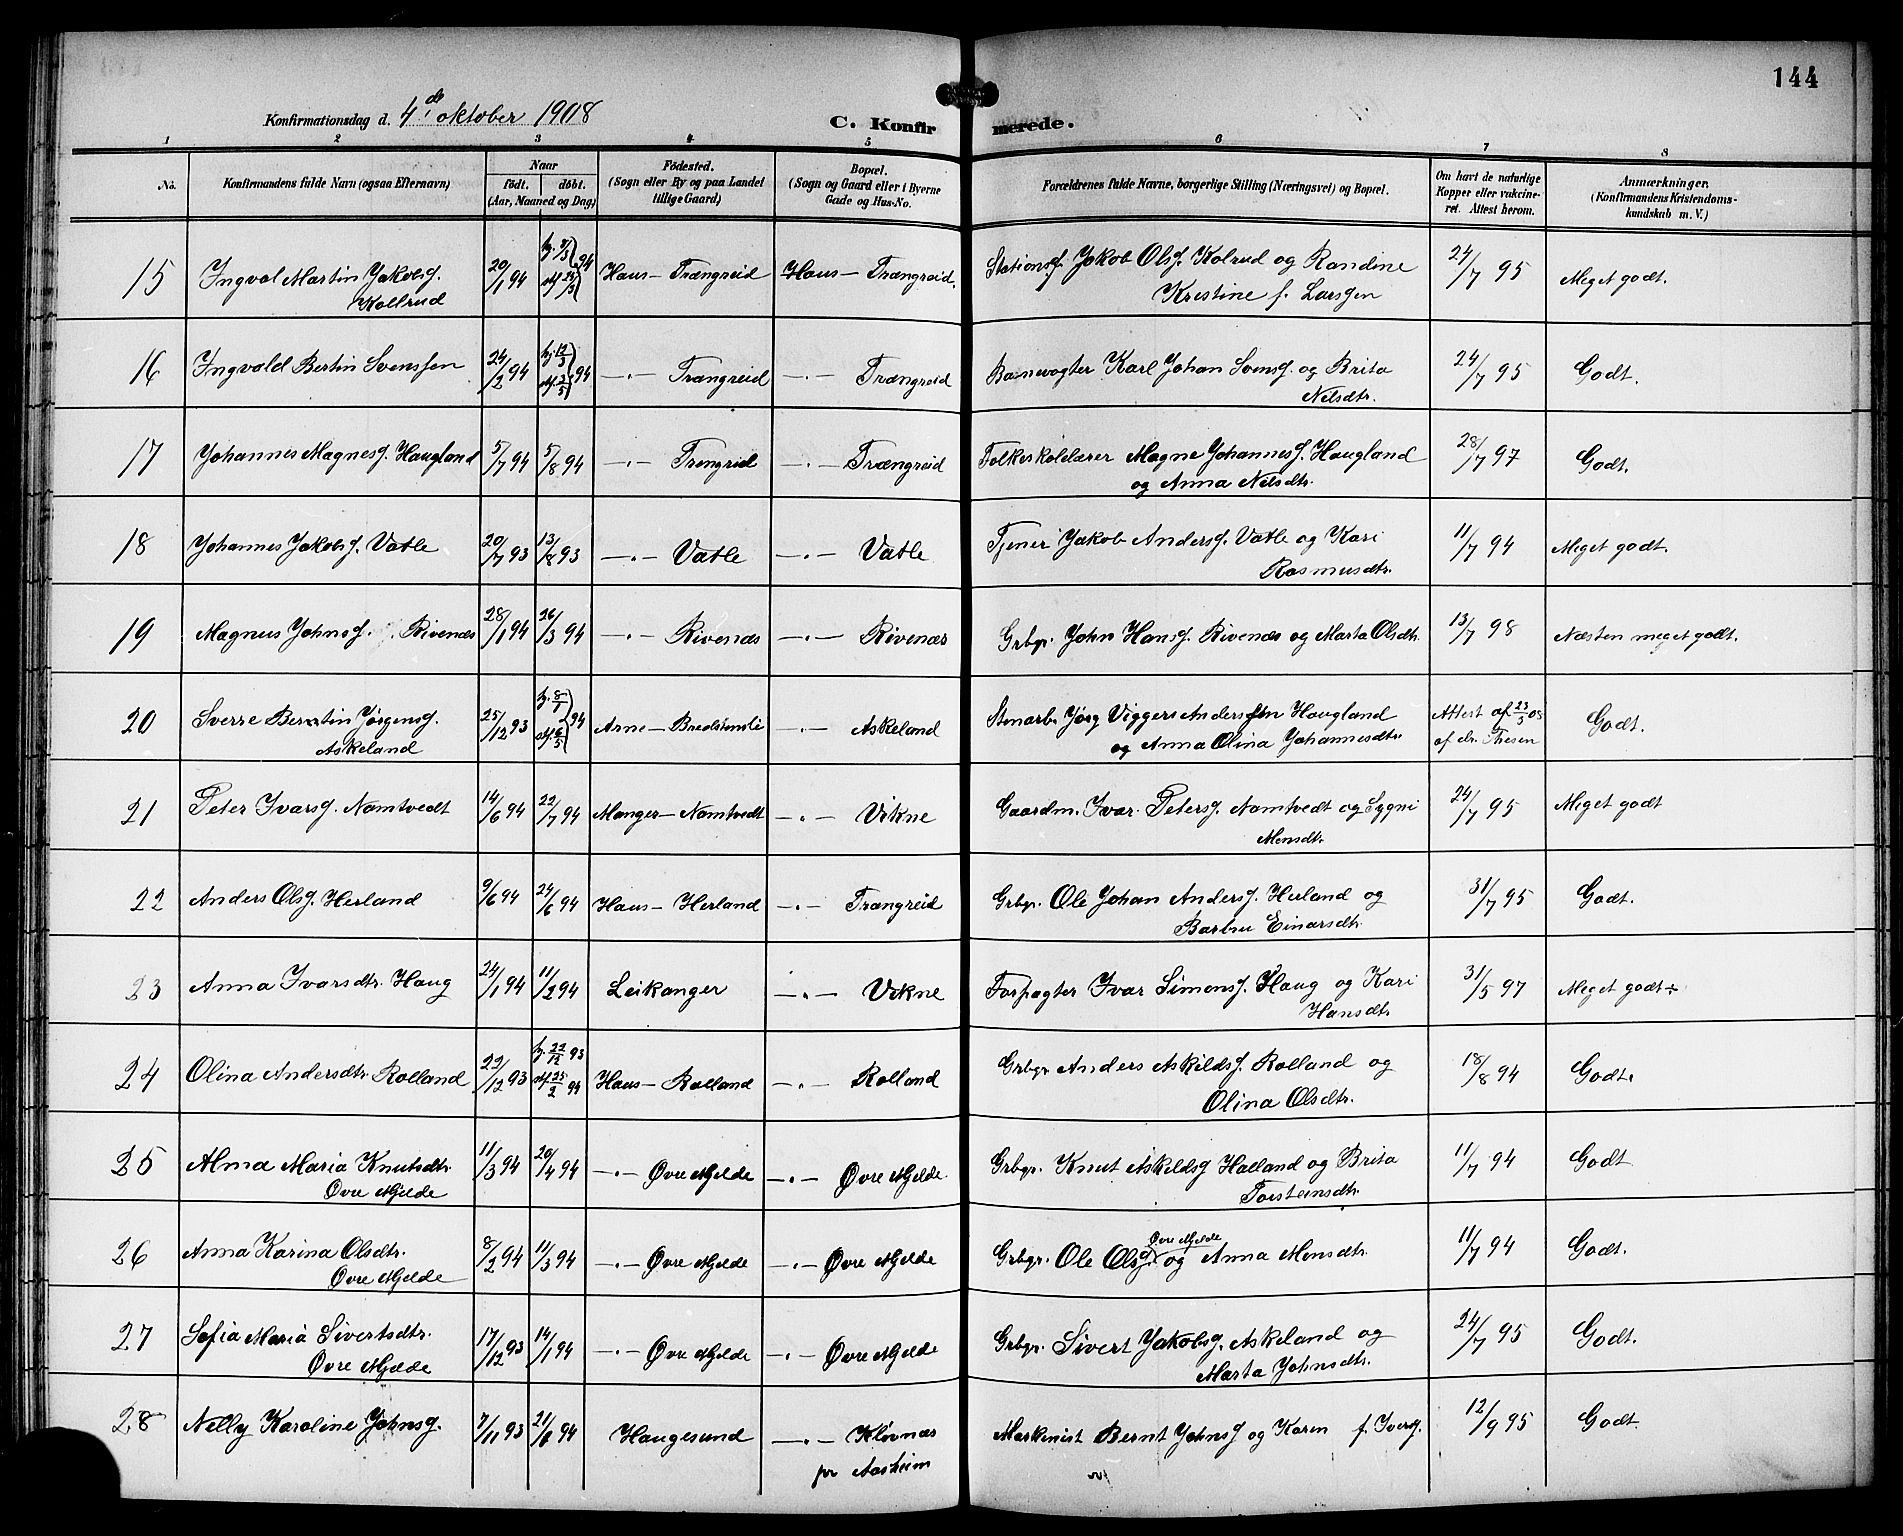 144
Konfirmationsdag d. 4de oktober 1908
C. Konfirmerede.
1 2 3 4 5 6 7 8
No.
Konfirmandens fulde Navn (ogsaa Efternavn)
Naar
födt. döbt.
(Aar, Maaned og Dag)
Födested.
(Sogn eller By og paa Landet
tillige Gaard)
Bopæl.
(Sogn og Gaard eller i Byerne
Gade og Hus-No.
Forældrenes fulde Navne, borgerlige Stilling (Næringsvei) og Bopæl.
Om havt de naturlige
Kopper eller vakcine-
ret. Attest herom.
Anmærkninger.
(Konfirmandens Kristendoms-
kundskab m. V.)
15 Ingval Martin Jakobsj. 20/1 94 hj. 9/3 stf. 26/3 94 Haus — Trængreid Haus — Trængreid. Stationsf. Jakob Olsj. Kolrud og Randine 24/7 95 Meget godt.
Kollrud Kristine f. Larsjen
16 Ingvald Bertin Svensjen 24/2 94 hj. 12/3 stf. 3/5 94 —„— Trængreid —„— Trængreid Banevogter Karl Johan Svensj. og Brita 24/7 95 Godt.
Nelsdtr.
17 Johannes Magnesj. Haugland 5/7 94 5/8 94 —„— Trengreid —„— Trængreid Folkeskolelærer Magne Johannesj. Haugland 28/7 97 Godt.
og Anna Nelsdtr.
18 Johannes Jakobsj. Vatle 20/7 93 13/8 93 —„— Vatle —„— Vatle Tjener Jakob Andersj. Vatle og Kari 11/7 94 Meget godt.
Rasmusdtr.
19 Magnus Johnsj. Rivenæs 28/1 94 26/3 94 —„— Rivenæs —„— Rivenæs Grbgr. John Hansj. Rivenæs og Marta Olsdtr. 13/7 98 Næsten meget godt.
20 Sverre Berntin Jørgensj. 25/12 93 hj. 8/1 stf. 6/5 94 Arne — Bredstunsli —„— Askeland Stenarb. Jørg Viggers Andersjen Haugland Attest af 23/5 08 Godt.
Askeland og Anna Olina Johannesdtr. af dr. Thesen
21 Peter Ivarsj. Namtvedt 14/6 94 22/7 94 Manger — Namtvedt —„— Vikne Gaardm. Ivar Petersj. Namtvedt og Sygni 24/7 95 Meget godt
Monsdtr.
22 Anders Olsj. Herland 9/6 94 24/6 94 Haus — Herland —„— Trængreid Grbgr. Ole Johan Andersj. Herland og 31/7 95 Godt.
Barbru Einarsdtr.
23 Anna Ivarsdtr. Haug 24/1 94 11/2 94 Leikanger —„— Vikne Forpagter Ivar Simonsj. Haug og Kari 31/5 97 Meget godt÷
Hansdtr.
24 Olina Andersdtr. Rolland 22/12 93 hj. 22/12 93 stf. 25/2 94 Haus — Rolland —„— Rolland Grbgr Anders Askildsj. Rolland og 18/8 94 Godt.
Olina Olsdtr.
25 Alma Maria Knutsdtr. 11/3 94 20/4 94 —„— Øvre Mjelde —„— Øvre Mjelde Grbgr. Knut Askildsj Halland og Brita 11/7 94 Godt
Øvre Mjelde Torsteinsdtr.
26 Anna Karina Olsdtr. 8/2 94 11/3 94 —„— Øvre Mjelde —„— Øvre Mjelde Grbgr. Ole Olsj. Øvre Mjelde og Anna Monsdtr. 11/7 94 Godt.
Øvre Mjelde
27 Sofia Maria Sivertsdtr. 17/12 93 14/1 94 —„— Øvre Mjelde —„— Øvre Mjelde Grbgr. Sivert Jakobsj. Askeland og 24/7 95 Godt.
Øvre Mjelde Marta Johnsdtr.
28 Nelly Karoline Johnsj. 7/11 93 94 Haugesund —„— Kløvnæs Maskinist Bernt Johnsj og Karen f. Iversj. 12/9 95 Godt
pr Aasheim